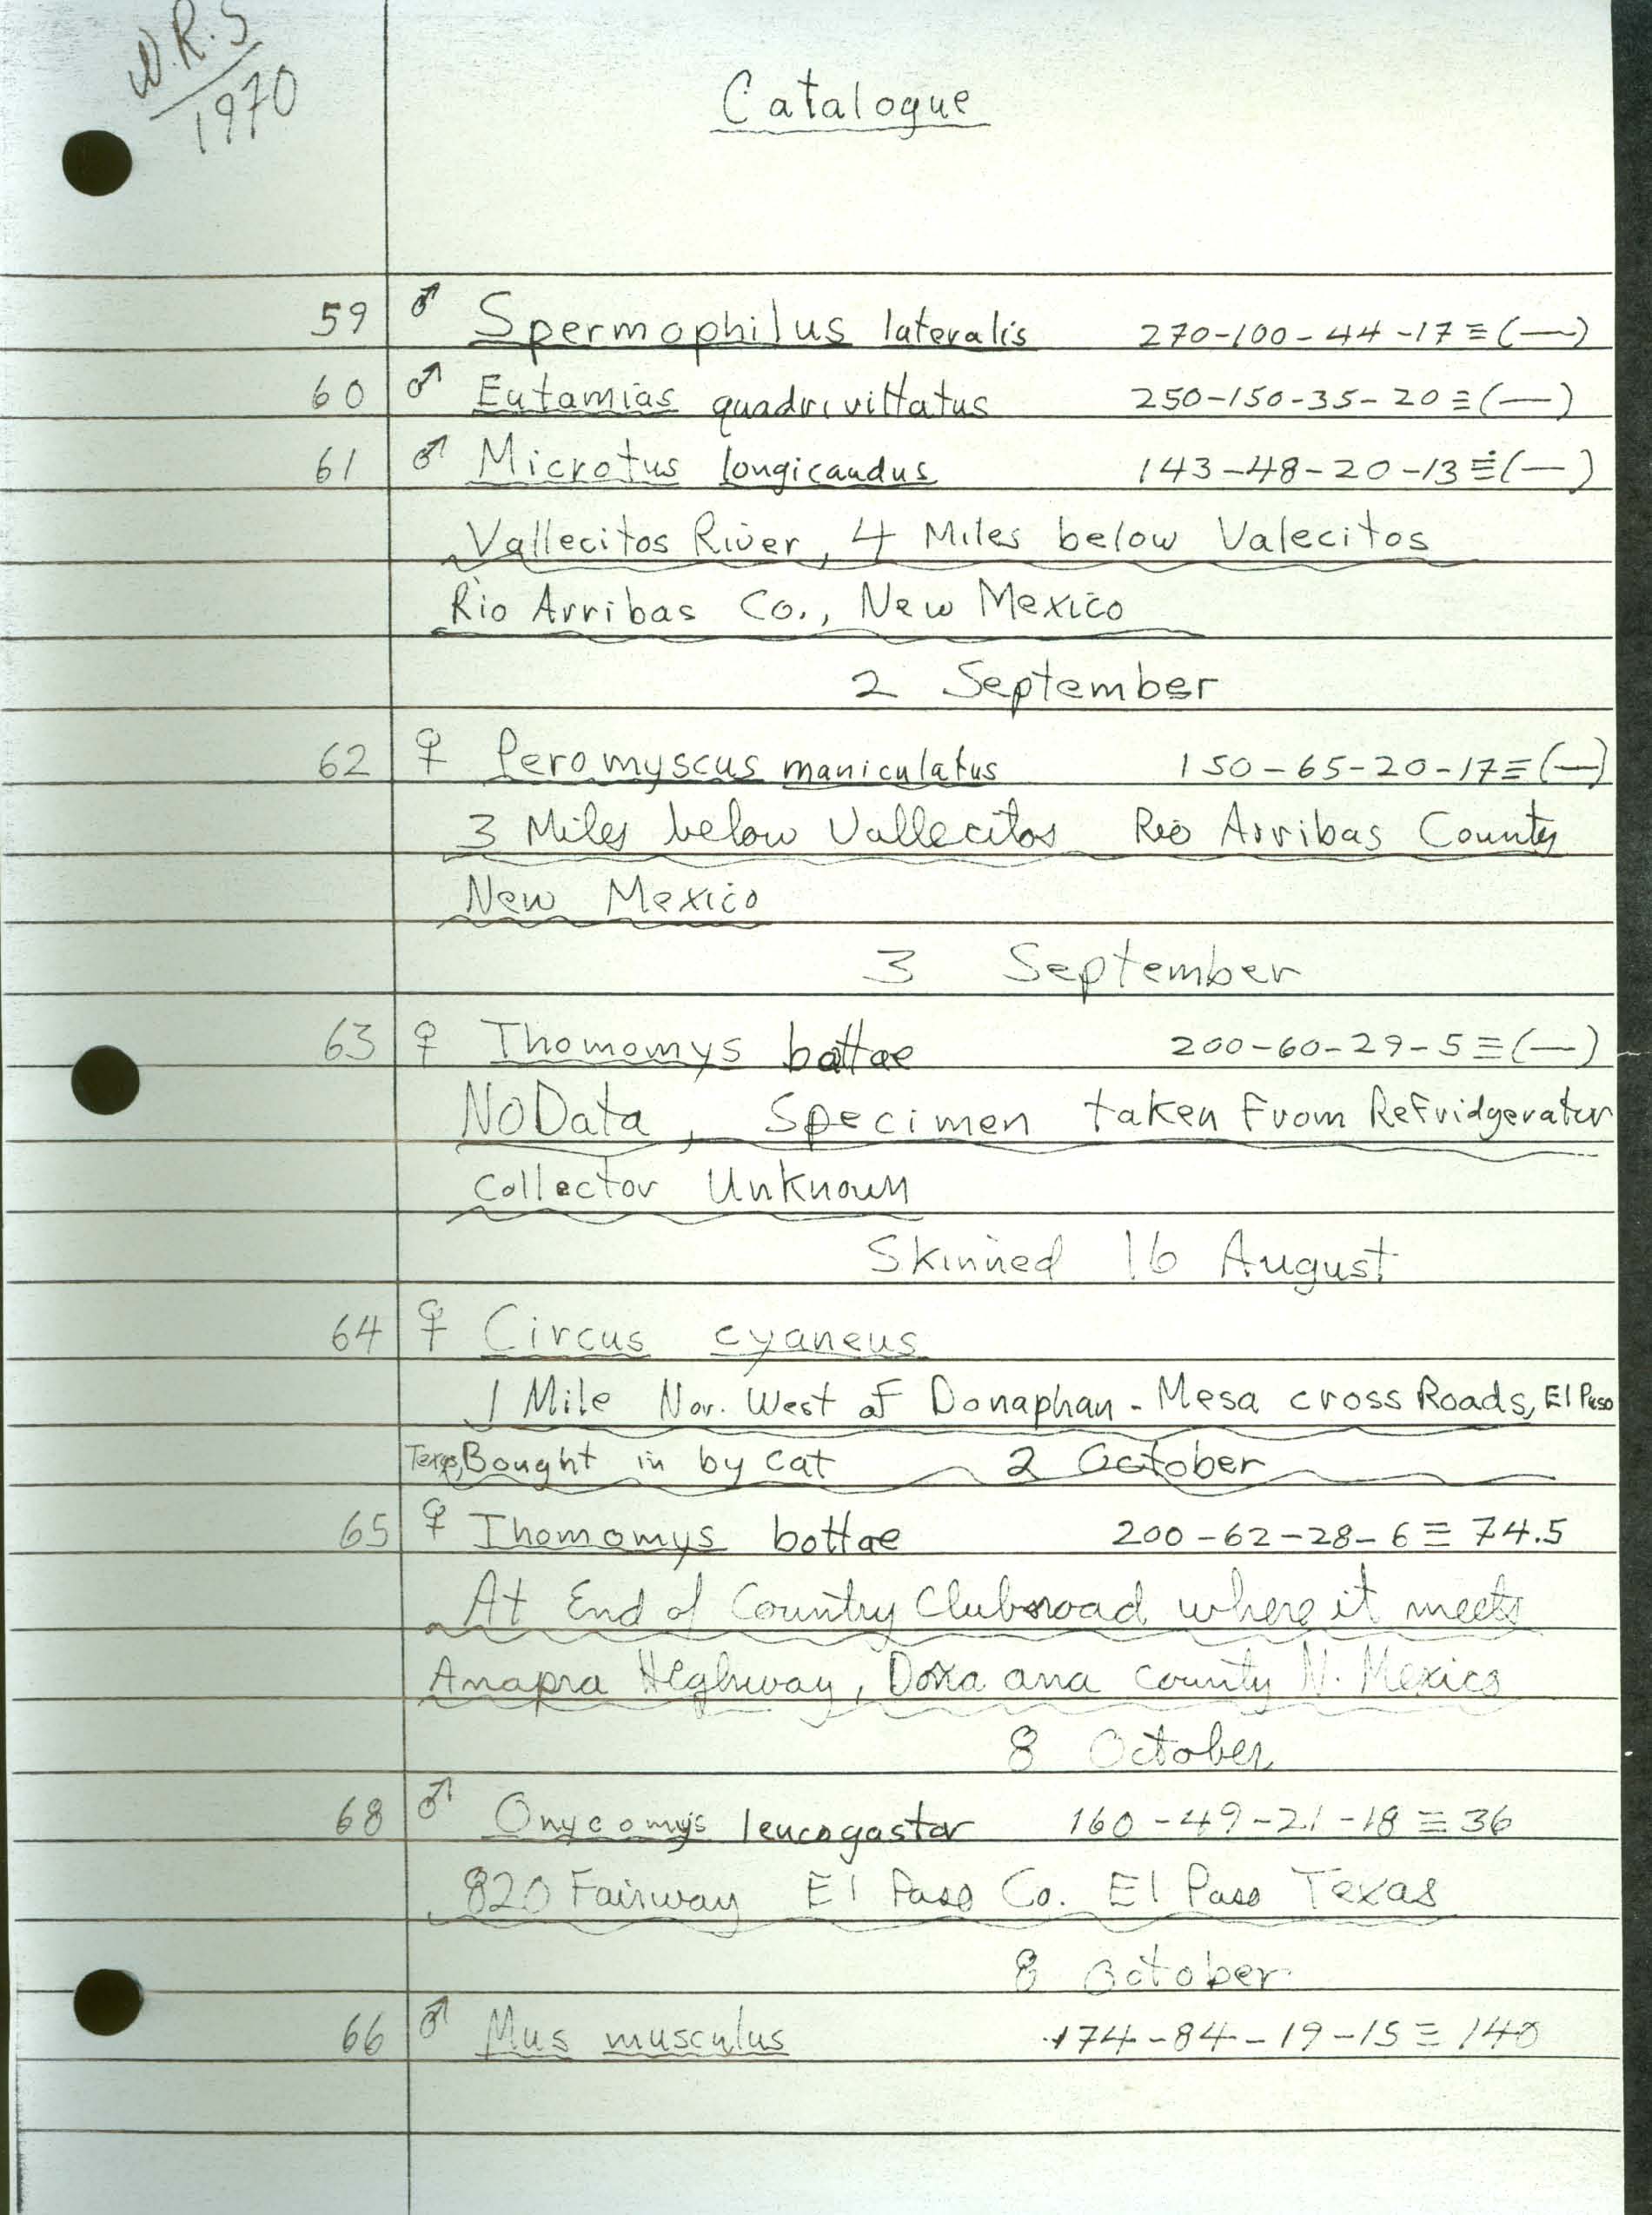 W.R.S
1970
Catalogue
59 ♂ Spermophilus lateralis 270-100-44-17≡(—)
60 ♂ Eutamias quadrivittatus 250-150-35-20≡(—)
61 ♂ Microtus longicaudus 143-48-20-13≡(—)
Vallecitos River, 4 Miles below Valecitos
Rio Arribas Co., New Mexico
2 September
62 ♀ Peromyscus maniculatus 150-65-20-17≡(—)
3 Miles below Vallecitos Rio Arribas County
New Mexico
3 September
63 ♀ Thomomys bottae 200-60-29-5≡(—)
No Data, Specimen taken From Refridgerator
Collector Unknown
Skinned 16 August
64 ♀ Circus cyaneus
1 Mile Nor. West of Donaphan-Mesa cross Roads, El Paso
Texas, Bought in by cat 2 October
65 ♀ Thomomys bottae 200-62-28-6≡74.5
At End of Country Club road where it meets
Anapra Highway, Dona ana county N. Mexico
8 October
68 ♂ Onycomys leucogastor 160-49-21-18≡36
820 Fairway El Paso Co. El Paso Texas
8 October
66 ♂ Mus musculus 174-84-19-15≡140